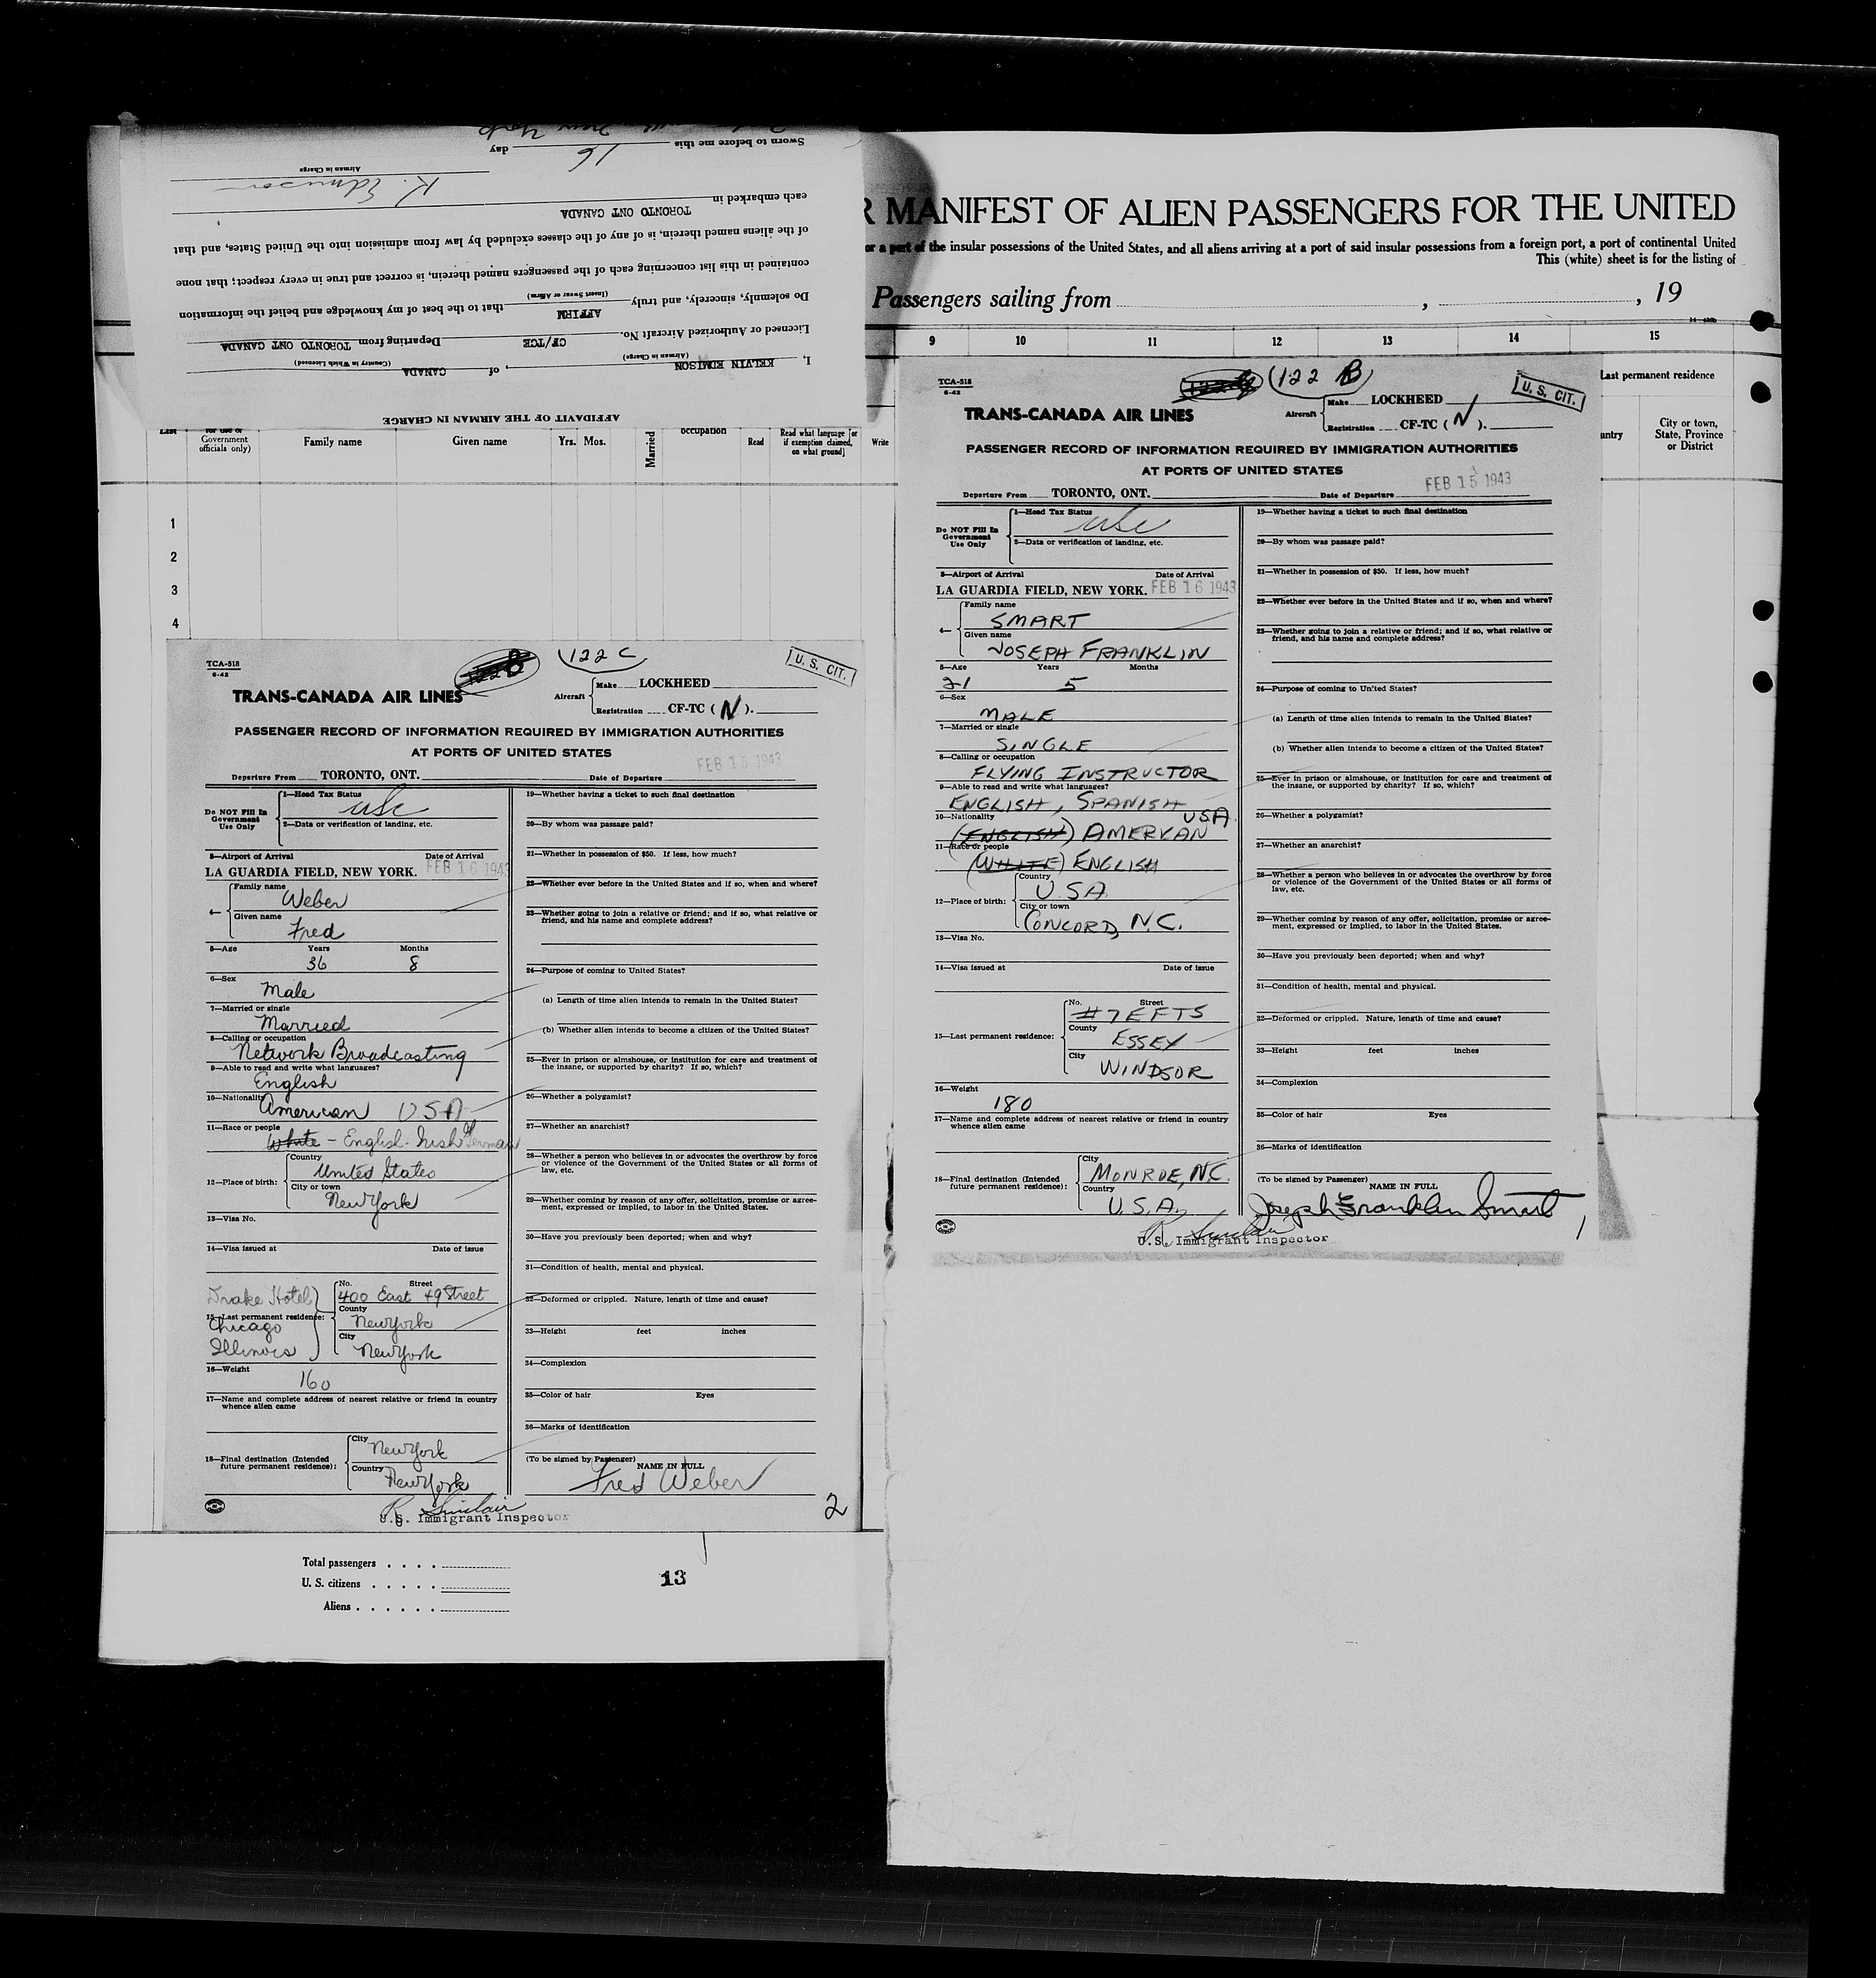 AFFIDAVIT OF THE AIRMAN IN CHARGE
I, KELVIN EDMISON, of CANADA
(Airman in Charge) (Country in Which Licensed)
Licensed or Authorized Aircraft No. CF/TCE Departing from TORONTO ONT CANADA
Do solemnly, sincerely, and truly AFFIRM that to the best of my knowledge and belief the information
(Insert Swear or Affirm)
contained in this list concerning each of the passengers named therein, is correct and true in every respect; that none
of the aliens named therein, is of any of the classes excluded by law from admission into the United States, and that
each embarked in TORONTO ONT CANADA
K. Edmison
Airman in Charge
Sworn to before me this 16 day
New York
R MANIFEST OF ALIEN PASSENGERS FOR THE UNITED
or a part of the insular possessions of the United States, and all aliens arriving at a port of said insular possessions from a foreign port, a port of continental United
This (white) sheet is for the listing of
Passengers sailing from , , 19
9 10 11 12 13 14 15
Last permanent residence
antry
City or town,
State, Province
or District
List
Government
officials only)
Family name
Given name
Yrs. Mos.
Married
occupation
Read
Read what language [or
if exemption claimed,
on what ground]
Write
1
2
3
4
TCA-518
6-42
122 C
U. S. CIT.
TRANS-CANADA AIR LINES
Aircraft
Make LOCKHEED
Registration CF-TC ( N ).
PASSENGER RECORD OF INFORMATION REQUIRED BY IMMIGRATION AUTHORITIES
AT PORTS OF UNITED STATES
FEB 15 1943
Departure From TORONTO, ONT. Date of Departure
Do NOT Fill In
Government
Use Only
1—Head Tax Status
usc
2—Data or verification of landing, etc.
3—Airport of Arrival Date of Arrival
LA GUARDIA FIELD, NEW YORK. FEB 16 1943
4—
Family name
Weber
Given name
Fred
5—Age Years Months
36 8
6—Sex
Male
7—Married or single
Married
8—Calling or occupation
Network Broadcasting
9—Able to read and write what languages?
English
10—Nationality
American USA
11—Race or people
White - English-Irish German
12—Place of birth:
Country
United States
City or town
New York
13—Visa No.
14—Visa issued at Date of issue
Drake Hotel
15—Last permanent residence:
Chicago
Illinois
No. Street
400 East 49 Street
County
New York
City
New York
16—Weight
160
17—Name and complete address of nearest relative or friend in country
whence alien came
18—Final destination (Intended
future permanent residence):
City
New York
Country
New York
19—Whether having a ticket to such final destination
20—By whom was passage paid?
21—Whether in possession of $50. If less, how much?
22—Whether ever before in the United States and if so, when and where?
23—Whether going to join a relative or friend; and if so, what relative or
friend, and his name and complete address?
24—Purpose of coming to United States?
(a) Length of time alien intends to remain in the United States?
(b) Whether alien intends to become a citizen of the United States?
25—Ever in prison or almshouse, or institution for care and treatment of
the insane, or supported by charity? If so, which?
26—Whether a polygamist?
27—Whether an anarchist?
28—Whether a person who believes in or advocates the overthrow by force
or violence of the Government of the United States or all forms of
law, etc.
29—Whether coming by reason of any offer, solicitation, promise or agree-
ment, expressed or implied, to labor in the United States.
30—Have you previously been deported; when and why?
31—Condition of health, mental and physical.
32—Deformed or crippled. Nature, length of time and cause?
33—Height feet inches
34—Complexion
35—Color of hair Eyes
36—Marks of identification
(To be signed by Passenger)
NAME IN FULL
Fred Weber
R. Sinclair
U.S. Immigrant Inspector
2
Total passengers . . . .
U. S. citizens . . . . .
Aliens . . . . . .
13
TCA-518
6-42
(122 B)
U. S. CIT.
TRANS-CANADA AIR LINES
Aircraft
Make LOCKHEED
Registration CF-TC ( N ).
PASSENGER RECORD OF INFORMATION REQUIRED BY IMMIGRATION AUTHORITIES
AT PORTS OF UNITED STATES
FEB 15 1943
Departure From TORONTO, ONT. Date of Departure
Do NOT Fill In
Government
Use Only
1—Head Tax Status
usc
2—Data or verification of landing, etc.
3—Airport of Arrival Date of Arrival
LA GUARDIA FIELD, NEW YORK. FEB 16 1943
4—
Family name
SMART
Given name
JOSEPH FRANKLIN
5—Age Years Months
21 5
6—Sex
MALE
7—Married or single
SINGLE
8—Calling or occupation
FLYING INSTRUCTOR
9—Able to read and write what languages?
ENGLISH, SPANISH
10—Nationality USA
(ENGLISH) AMERICAN
11—Race or people
(WHITE) ENGLISH
12—Place of birth:
Country
USA
City or town
CONCORD, N.C.
13—Visa No.
14—Visa issued at Date of issue
15—Last permanent residence:
No. Street
#7 EFTS
County
ESSEX
City
WINDSOR
16—Weight
180
17—Name and complete address of nearest relative or friend in country
whence alien came
18—Final destination (Intended
future permanent residence):
City
MONROE, N.C.
Country
U.S.A.
19—Whether having a ticket to such final destination
20—By whom was passage paid?
21—Whether in possession of $50. If less, how much?
22—Whether ever before in the United States and if so, when and where?
23—Whether going to join a relative or friend; and if so, what relative or
friend, and his name and complete address?
24—Purpose of coming to United States?
(a) Length of time alien intends to remain in the United States?
(b) Whether alien intends to become a citizen of the United States?
25—Ever in prison or almshouse, or institution for care and treatment of
the insane, or supported by charity? If so, which?
26—Whether a polygamist?
27—Whether an anarchist?
28—Whether a person who believes in or advocates the overthrow by force
or violence of the Government of the United States or all forms of
law, etc.
29—Whether coming by reason of any offer, solicitation, promise or agree-
ment, expressed or implied, to labor in the United States.
30—Have you previously been deported; when and why?
31—Condition of health, mental and physical.
32—Deformed or crippled. Nature, length of time and cause?
33—Height feet inches
34—Complexion
35—Color of hair Eyes
36—Marks of identification
(To be signed by Passenger)
NAME IN FULL
Joseph Franklin Smart
R. Sinclair
U.S. Immigrant Inspector
1